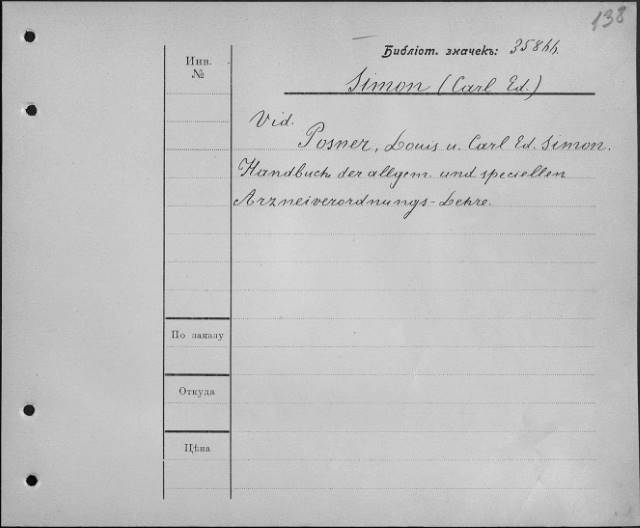 138
Библіот. значекъ: 35844.
Инв.
№
Simon (Carl Ed.)
Vid.
Posner, Louis u. Carl Ed. Simon.
Handbuch der allgem. und speciellen
Arzneiverordnungs-Lehre.
По заказу
Откуда
Цѣна